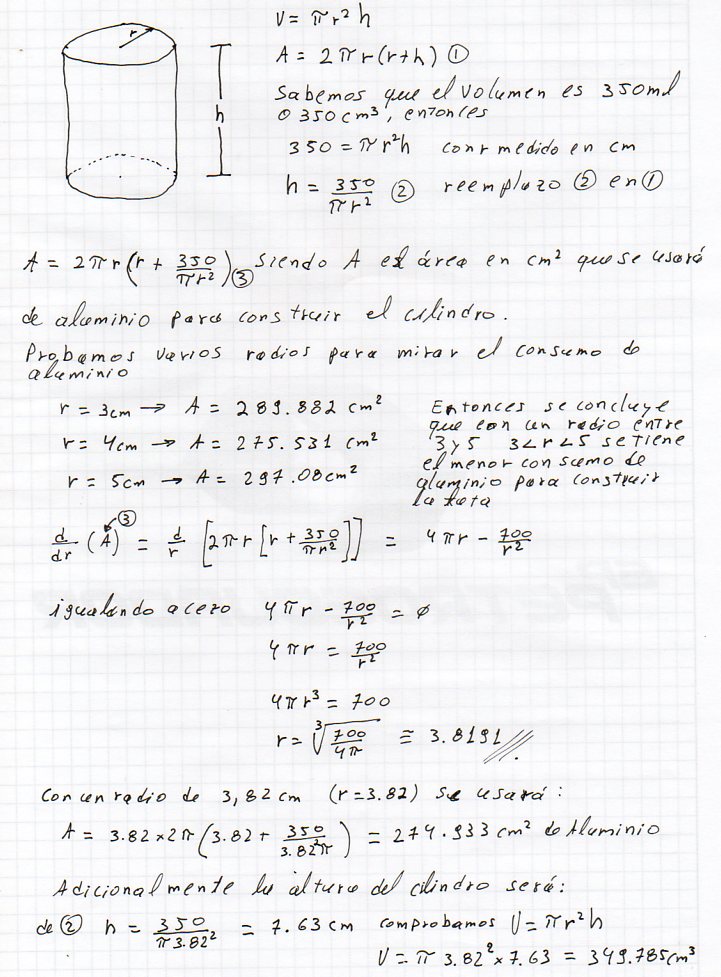 r
h
V = πr² h
A = 2πr(r+h) ①
Sabemos que el volumen es 350ml
o 350cm³, entonces
350 = πr²h con r medido en cm
h = 350/πr² ② reemplazo ② en ①
A = 2πr(r + 350/πr²) ③ siendo A el área en cm² que se usará
de aluminio para construir el cilindro.
Probamos varios radios para mirar el consumo de
aluminio
r = 3cm → A = 289.882 cm²
r = 4cm → A = 275.531 cm²
r = 5cm → A = 297.08cm²
Entonces se concluye
que con un radio entre
3 y 5 3<r<5 se tiene
el menor consumo de
aluminio para construir
la lata
③
d/dr (A) = d/r [2πr[r + 350/πr²]] = 4πr - 700/r²
igualando a cero 4πr - 700/r² = ø
4πr = 700/r²
4πr³ = 700
r = ³√(700/4π) ≅ 3.8191 //.
Con un radio de 3,82 cm (r=3.82) se usará:
A = 3.82×2π(3.82 + 350/3.82²π) = 274.933 cm² de Aluminio
Adicionalmente la altura del cilindro será:
de ② h = 350/π3.82² = 7.63 cm comprobamos V = πr²h
V = π 3.82² × 7.63 = 349.785cm³